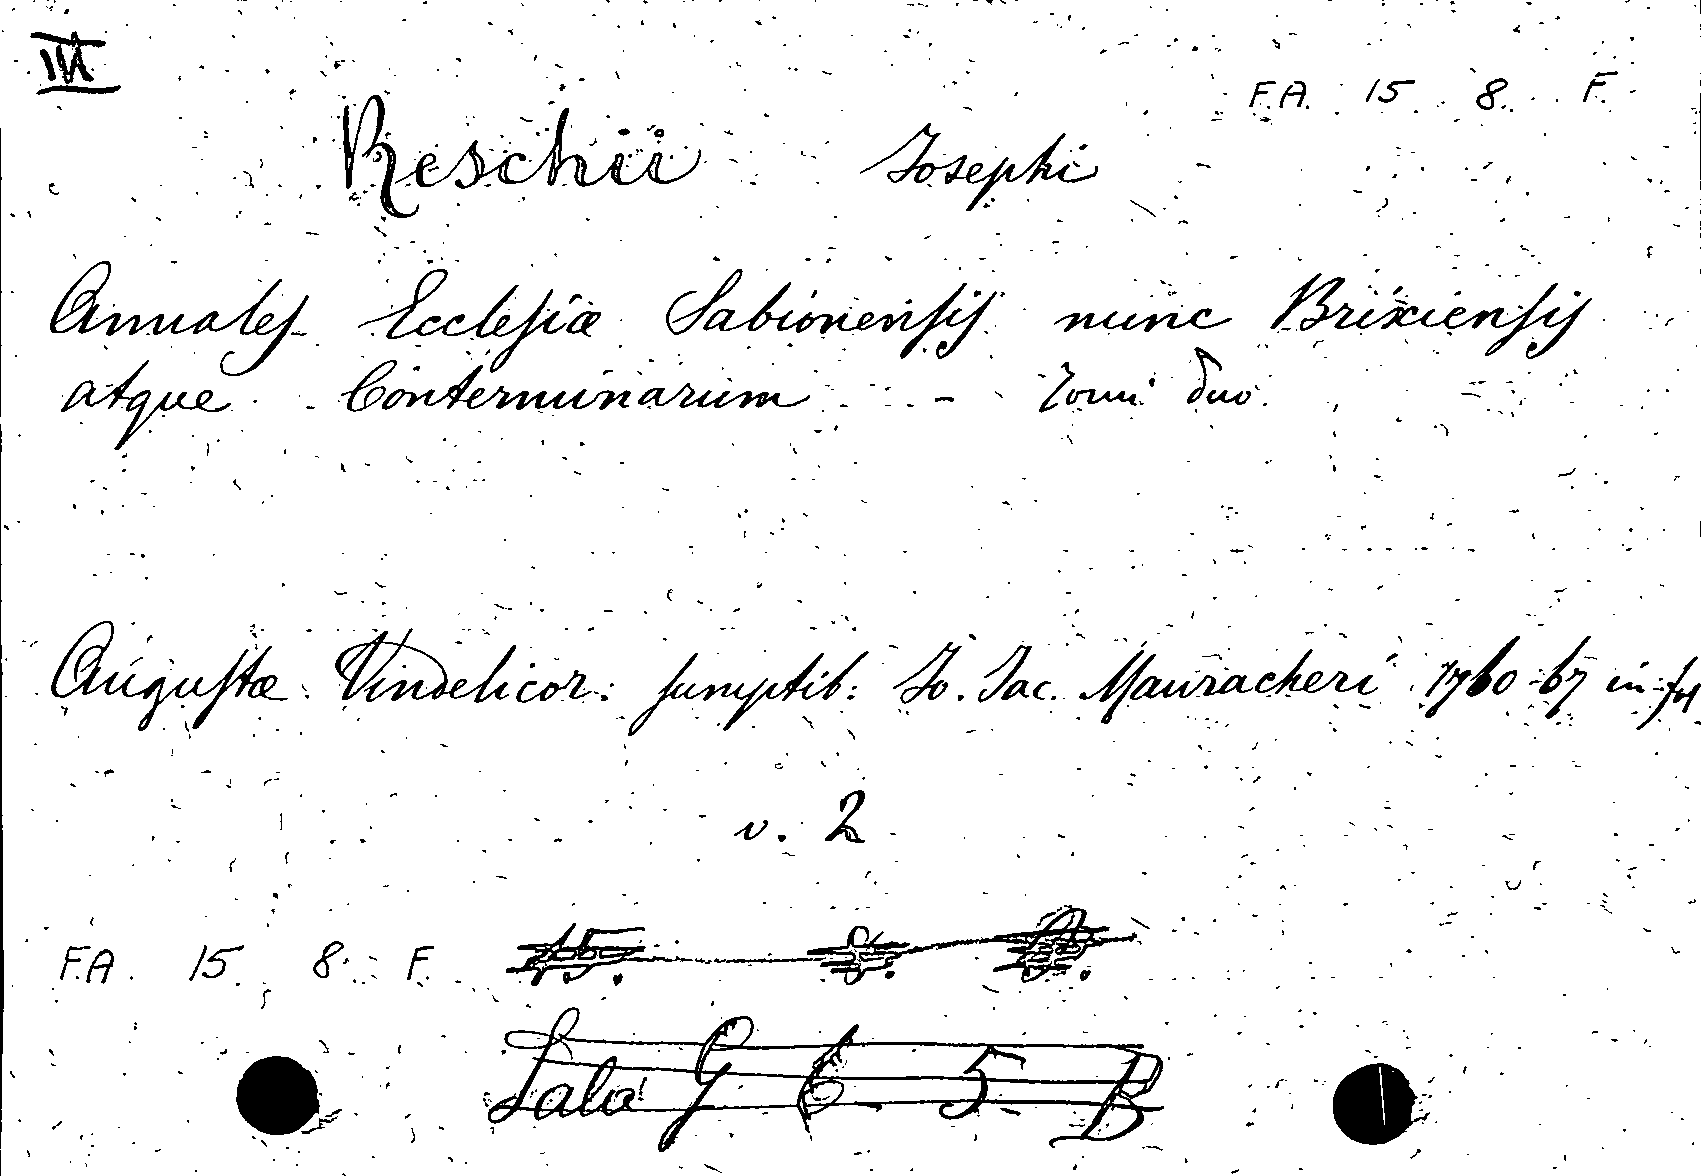 III
F.A. 15 8. F.
Reschii Josephi
Annales Ecclesiæ Sabionensis nunc Brixiensis
atque Conterminarum - Tomi duo.
Augustæ Vindelicor: sumptib: Jo. Jac. Mauracheri 1760-67 in fol
v. 2
F.A. 15 8. F. 15. 8.
Sala G 6. 5. B